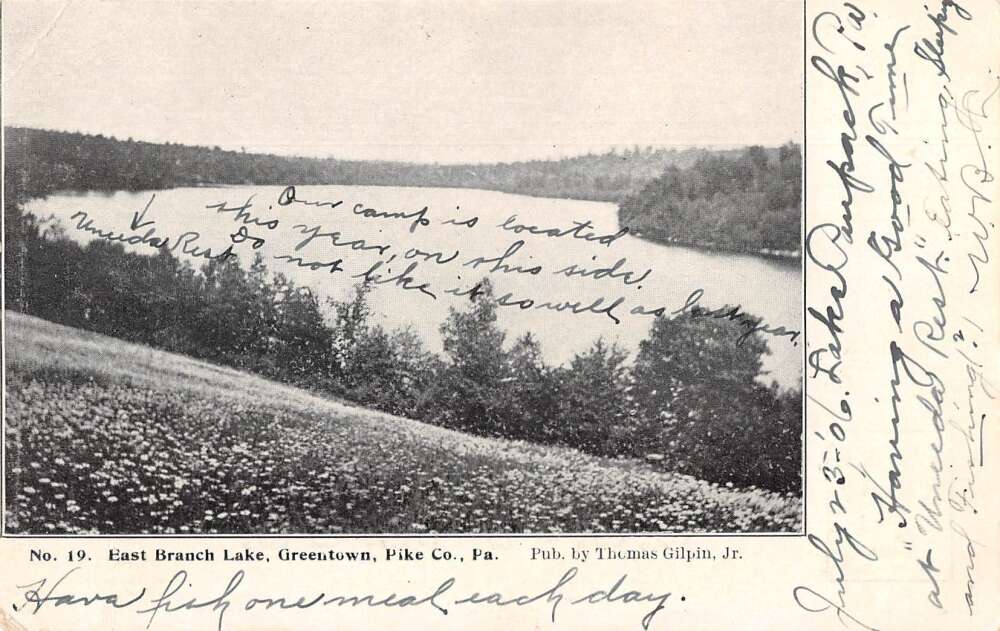 Our camp is located
this year, on this side.
Uneeda Rest
Do not like it so well as last year.
No. 19. East Branch Lake, Greentown, Pike Co., Pa. Pub. by Thomas Gilpin, Jr.
Hava fish one meal each day.
July 23-'06. Lake Paupack, Pa.
Having a Good Time
at "Uneeda Rest." Eating, Sleeping
and Fishing!